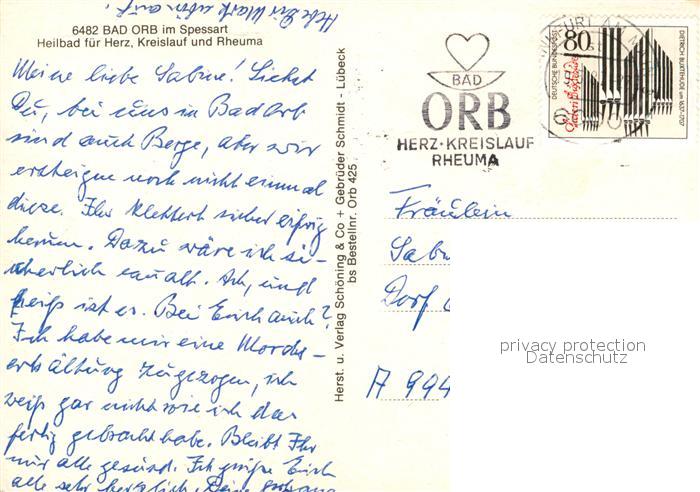 6482 BAD ORB im Spessart
Heilbad für Herz, Kreislauf und Rheuma
Meine liebe Sabine! Siehst
Du, bei uns in Bad Orb
sind auch Berge, aber wir
ersteigen noch nicht einmal
diese. Ihr klettert sicher eifrig
herum. Dazu wäre ich si-
cherlich zu alt. Ach, und
heiß ist es. Bei Euch auch?
Ich habe mir eine Mords-
erkältung zugezogen, ich
weiß gar nicht wie ich das
fertig gebracht habe. Bleibt Ihr
mir alle gesund. Ich grüße Euch
alle sehr herzlich, Deine
Herst. u. Verlag Schöning & Co + Gebrüder Schmidt - Lübeck
bs Bestellnr. Orb 425
BAD
ORB
HERZ·KREISLAUF
RHEUMA
80
DEUTSCHE BUNDESPOST
DIETRICH BUXTEHUDE um 1637-1707
Fräulein
Sab
Dorf
A 994
privacy protection
Datenschutz